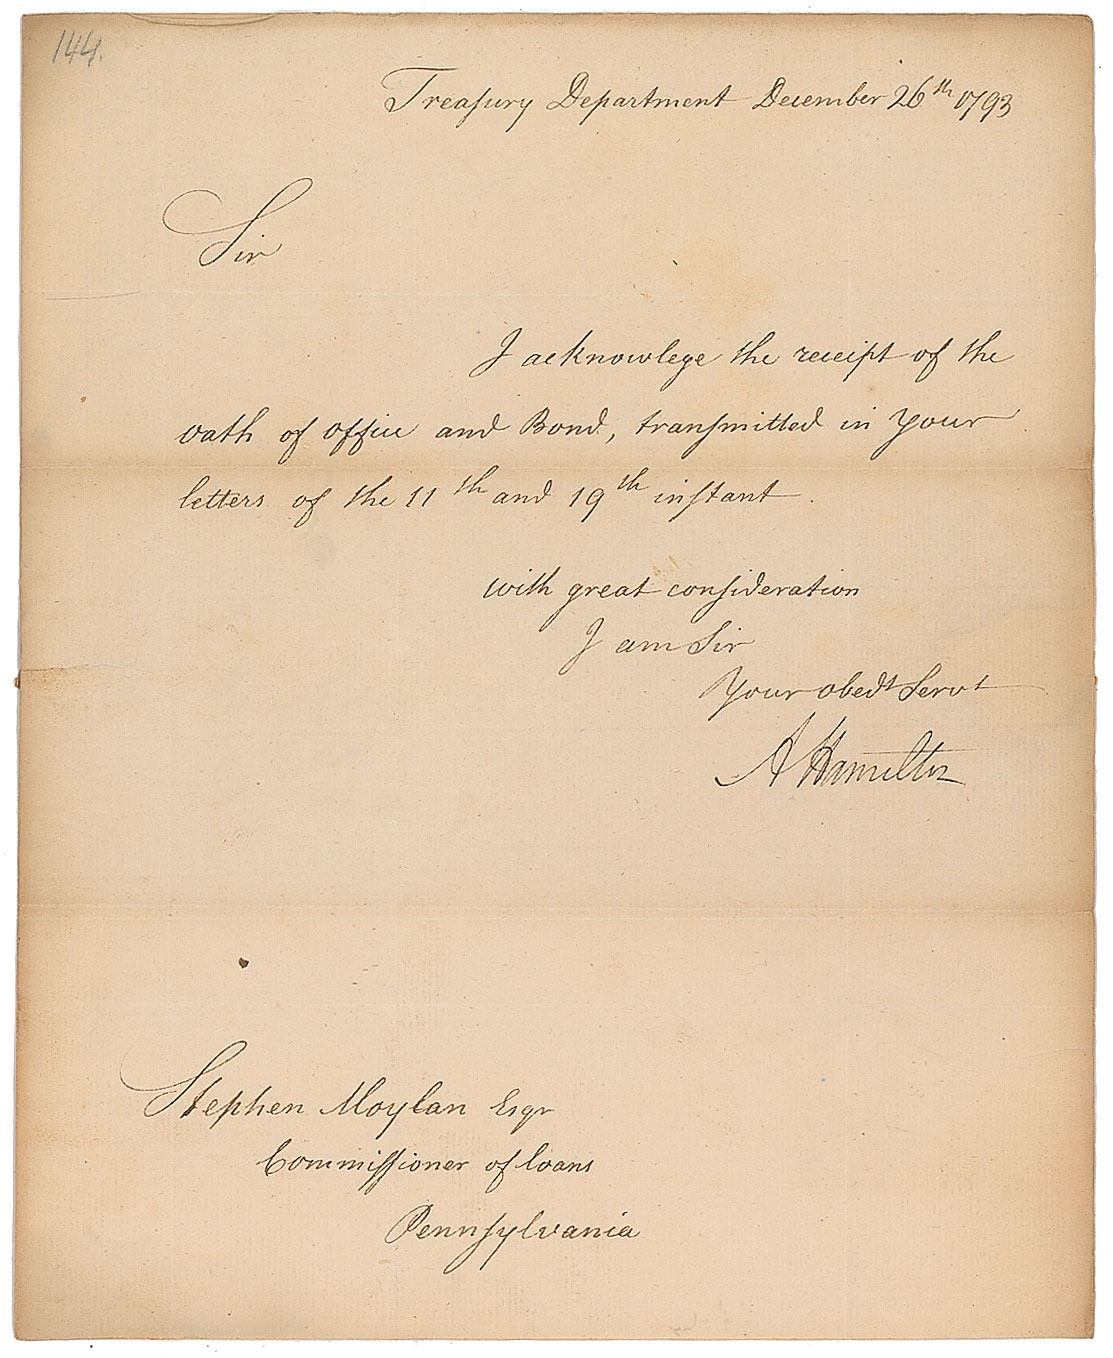 144.
Treasury Department December 26th 1793
Sir
I acknowlege the receipt of the
oath of office and Bond, transmitted in your
letters of the 11th and 19th instant.
with great consideration
I am Sir
Your obedt Servt
A Hamilton
Stephen Moylan Esqr
Commissioner of loans
Pennsylvania